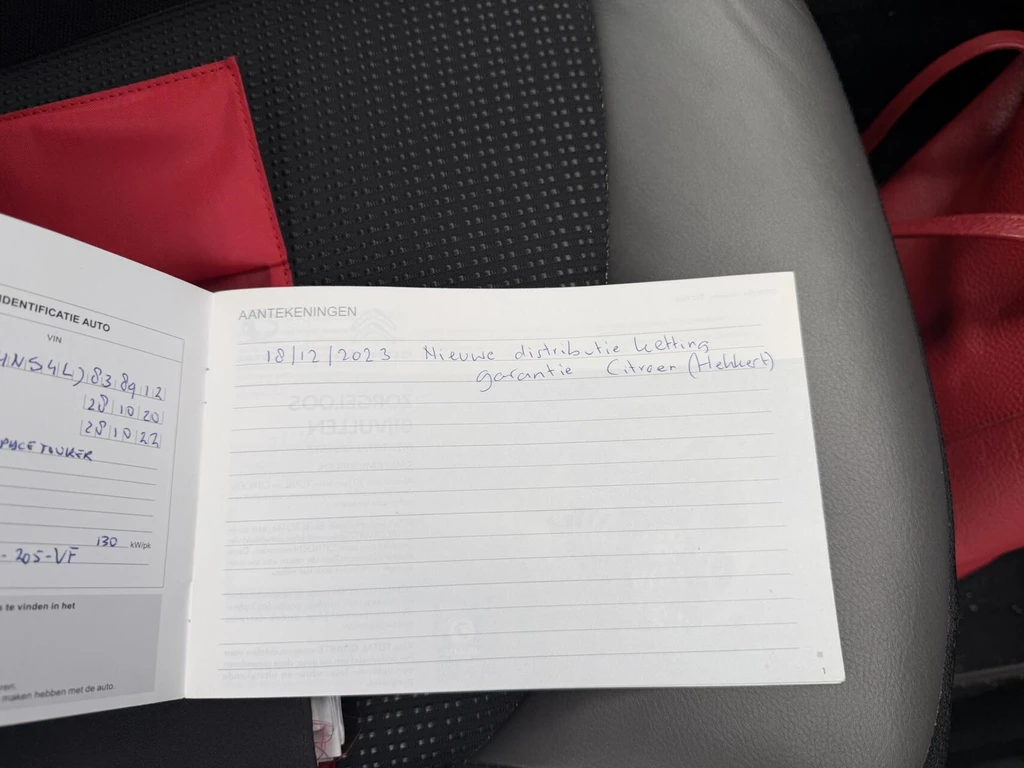 IDENTIFICATIE AUTO
VIN
HNS4L)838912
28 10 20
28 10 22
SPACETOURER
130 kW/pk
- 205-VF
s te vinden in het
ren.
maken hebben met de auto.
AANTEKENINGEN
18/12/2023 Nieuwe distributie ketting
garantie Citroen (Hekkert)
1